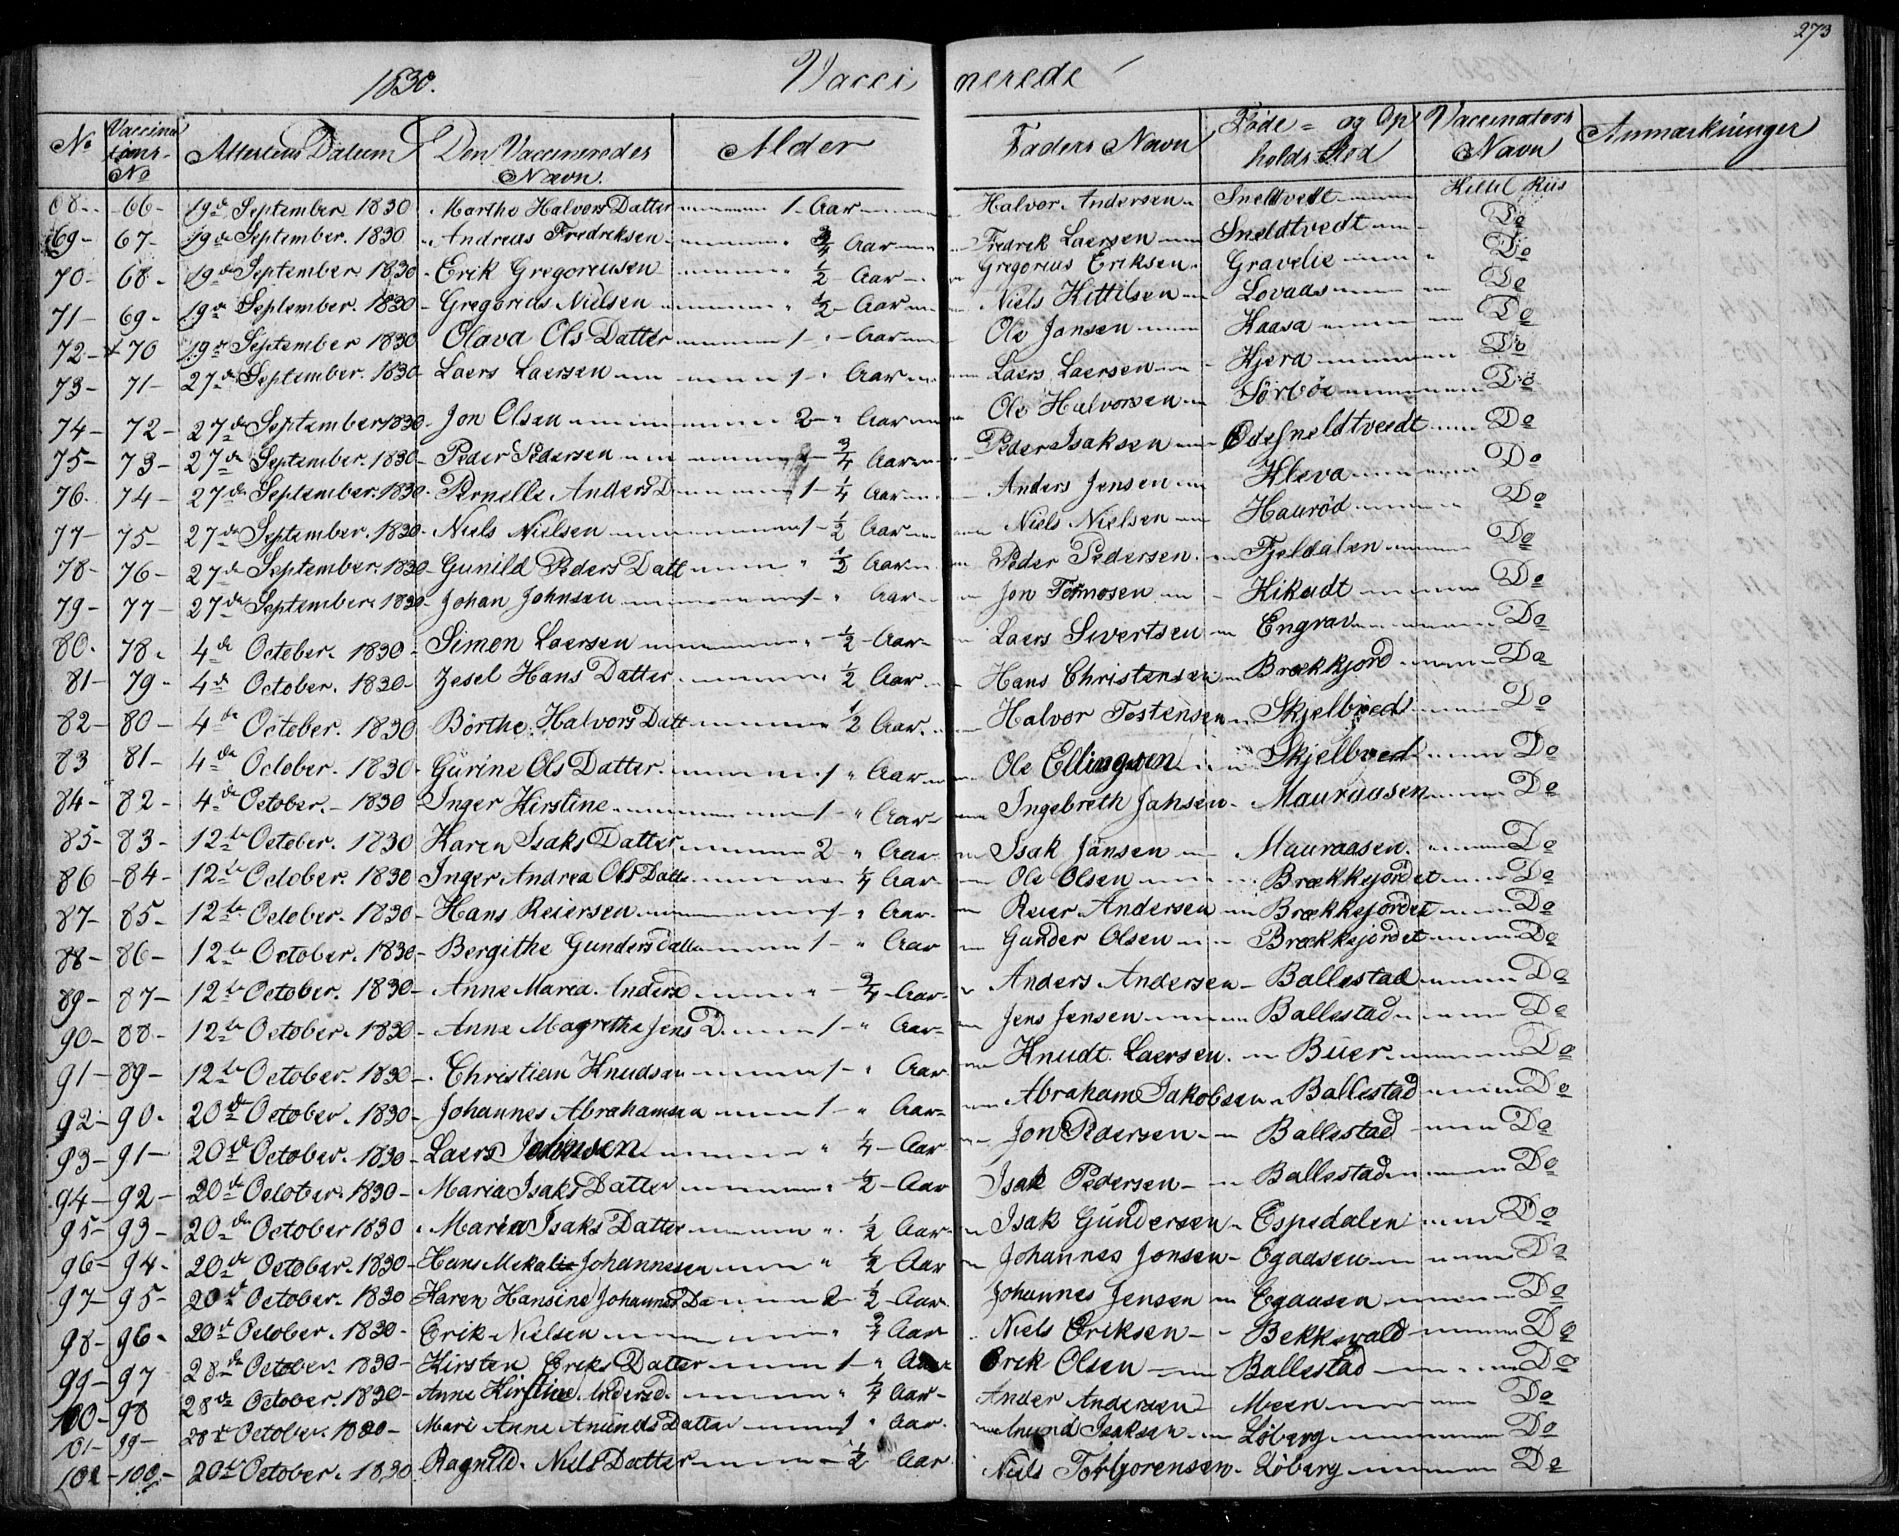 273
1830. Vaccinerede
No Vaccinations No Attestens Datum Den Vaccineredes Navn. Alder Faders Navn Føde- og Opholds Sted Vaccinators Navn Anmærkninger
68 - 66 - 19de September 1830 Marthe Halvors Datter 1 - Aar Halvor Andersen Sneltvedt Kittel Riis
69 - 67 - 19de September. 1830 Andreas Fredriksen 3/4 Aar Fredrek Laersen Sneldtvedt Do
70 - 68 - 19de September 1830 - Erik Gregoriusen 1/2 Aar Gregorius Eriksen Gravelie Do
71 - 69 - 19de September 1830 - Gregorius Nielsen 1/2 - Aar Niels Kittilsen Lovaas Do
72 - 70 19de September 1830 Olava Ols Datter 1 - Aar Ole Jansen Kaasa Do
73 - 71 - 27de September. 1830 - Laers Laersen 1 - Aar Laers Laersen Kjera Do
74 - 72 - 27de September 1830 - Jon Olsen 2 - Aar Ole Halvorsen Sørbøe Do
75 - 73 - 27de September. 1830 - Peder Pedersen 3/4 Aar Peder Isaksen Ødesneldtvedt Do
76 - 74 - 27de September. 1830 - Pernelle Anders D 1 - 1/4 Aar Anders Jensen Kleva Do
77 - 75 - 27de September. 1830 - Niels Nielsen 1 - 1/2 Aar Niels Nielsen Haurød Do
78 - 76 - 27de September. 1830 - Gunild Peders Datt 1/2 Aar Peder Pedersen Fjeldalen Do
79 - 77 - 27de September. 1830 - Johan Johnsen 1 - Aar Jon Tormosen Kikudt Do
80 - 78 - 4de October. 1830 - Simon Laersen - 1/2 - Aar Laers Sivertsen Engrav Do
81 - 79 - 4de October. 1830 - Zesel Hans Datter 1/2 Aar Hans Christensen Brækkjord Do
82 - 80 - 4de October. 1830 Børthe Halvors Datt 1/2 Aar Halvor Tostensen Skjelbred Do
83 81 - 4de October. 1830 - Gurine Ols Datter. 1 Aar Ole Ellingsen Skjelbred Do
84 - 82 - 4de October. - 1830 Inger Kirstine 1 - Aar Ingebreth Jahsen - Mauraasen Do
85 - 83 - 12te October. 1830 Karen Isaks Datter 2 - Aar Isak Jansen Mauraasen. Do
86 - 84 - 12te October. 1830 Inger Andrea Ols Datte 1/4 Aar Ole Olsen Brækkejordet Do
87 - 85 - 12te October. 1830 - Hans Reiersen 1 - Aar Reier Andersen Brækkejordet Do
88 - 86 - 12te October. 1830 - Bergithe Gunders Datter 1 - Aar Gunder Olsen Brækkejordet Do
89 - 87 - 12te October. 1830 - Anne Maria Anders D 3/4 - Aar Anders Andersen - Ballestad Do
90 - 88 - 12te October. 1830 - Anne Magrethe Jens D. 1 - Aar Jens Jensen Ballestad Do
91 - 89 - 12te October. 1830 - Christian Knudsen 1 - Aar Knudt Laersen Buer Do
92 - 90 - 20de October. 1830 - Johannes Abrahamsen 1 - Aar Abraham Jakobsen Ballestad Do
93 - 91 - 20de October. 1830 - Laers Johnsen 1/4 - Aar Jon Pedersen Ballestad Do
94 - 92 - 20de October. 1830 - Maria Isaks Datter 1/2 - Aar Isak Pedersen Ballestad Do
95 - 93 - 20de October 1830 Maria Isaks Datter 1/2 Aar Isak Gundersen Espedalen Do
96 - 94 - 20de October. 1830 - Hans Mekal Johannesen 1/2 Aar Johannes Jonsen - Egaasen Do
97 - 95 - 20de October. 1830 Karen Hansine Johannes Da 2 1/2 Aar Johannes Jensen Egaasen Do
98 - 96 - 20de October. 1830 - Erik Nielsen 3/4 Aar Niels Eriksen - Bekkevald Do
99 - 97 28de October. 1830 - Kirsten Eriks Datter 1 - Aar Erik Olsen Ballestad Do
100 - 98 28de October. 1830 - Anne Kirstine Anders d. 1/4 Aar - Ander Andersen Meen Do
101 - 99 - 28de October. 1830 - Mari Anne Anunds Datter 1 Aar Anund Isaksen Løberg Do
102 - 100 - 20de October. 1830 Ragnild Niels Datter 1/2 Aar Niels Torbjorensen - Løberg Do